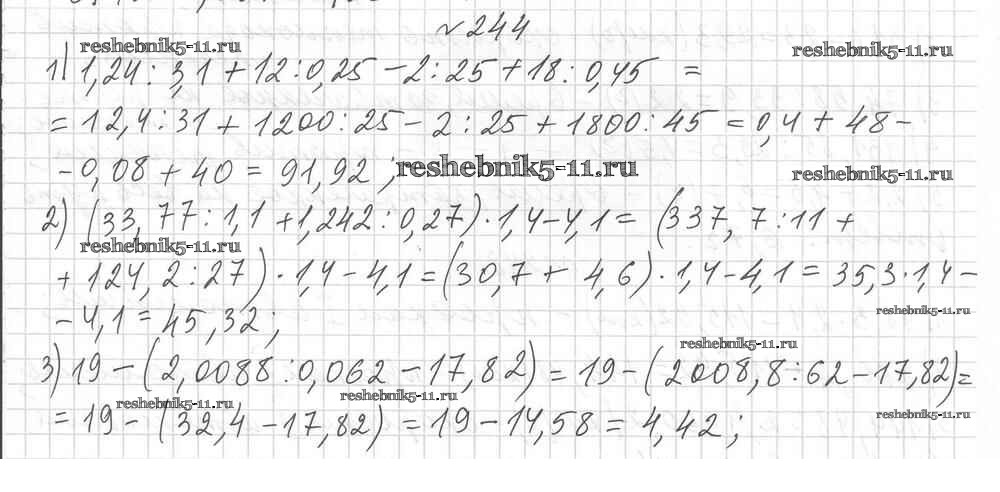 №244
reshebnik5-11.ru
reshebnik5-11.ru
1) 1,24 : 3,1 + 12 : 0,25 – 2 : 25 + 18 : 0,45 =
= 12,4 : 31 + 1200 : 25 – 2 : 25 + 1800 : 45 = 0,4 + 48 –
– 0,08 + 40 = 91,92 ;
reshebnik5-11.ru
reshebnik5-11.ru
2) (33,77 : 1,1 + 1,242 : 0,27) · 1,4 – 4,1 = (337,7 : 11 +
reshebnik5-11.ru
+ 124,2 : 27) · 1,4 – 4,1 = (30,7 + 4,6) · 1,4 – 4,1 = 35,3 · 1,4 –
reshebnik5-11.ru
– 4,1 = 45,32 ;
reshebnik5-11.ru
3) 19 – (2,0088 : 0,062 – 17,82) = 19 – (2008,8 : 62 – 17,82) =
reshebnik5-11.ru
reshebnik5-11.ru
reshebnik5-11.ru
= 19 – (32,4 – 17,82) = 19 – 14,58 = 4,42 ;